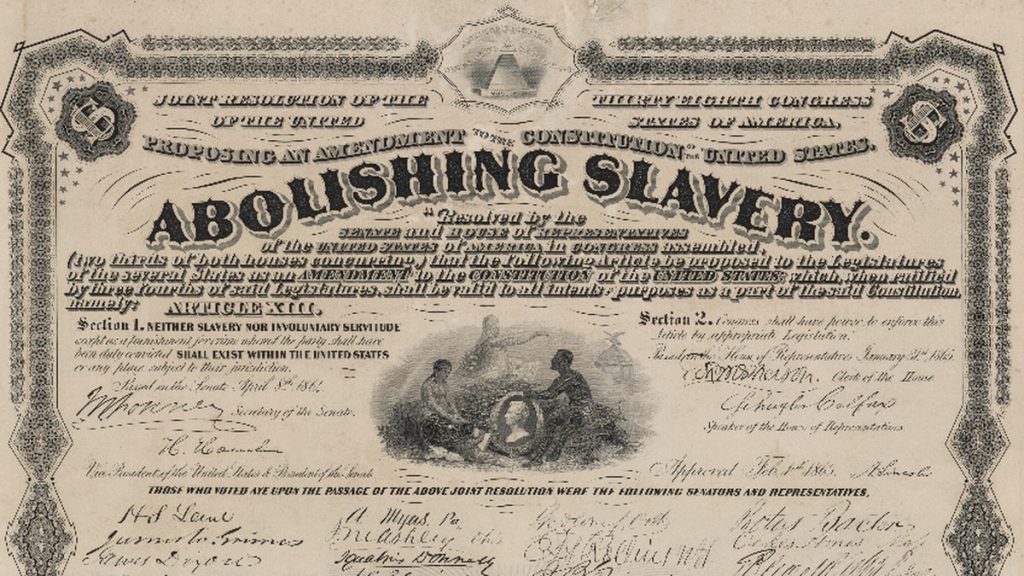 JOINT RESOLUTION OF THE THIRTY EIGHTH CONGRESS
OF THE UNITED STATES OF AMERICA,
PROPOSING AN AMENDMENT TO THE CONSTITUTION OF THE UNITED STATES.
ABOLISHING SLAVERY.
"Resolved by the
SENATE and HOUSE OF REPRESENTATIVES
of the UNITED STATES OF AMERICA in CONGRESS assembled,
(two thirds of both houses concurring,) that the following Article be proposed to the Legislatures
of the several States as an AMENDMENT to the CONSTITUTION of the UNITED STATES, which, when ratified
by three fourths of said Legislatures, shall be valid to all intents & purposes as a part of the said Constitution,
namely: ARTICLE XIII.
Section 1. NEITHER SLAVERY NOR INVOLUNTARY SERVITUDE
except as a punishment for crime whereof the party shall have
been duly convicted SHALL EXIST WITHIN THE UNITED STATES
or any place subject to their jurisdiction.
Passed in the Senate April 8th 1864.
Secretary of the Senate.
H. Hamlin
Vice President of the United States & President of the Senate
Section 2. Congress shall have power to enforce this
Article by appropriate Legislation.
Passed in the House of Representatives January 31st 1865
Clerk of the House
Schuyler Colfax
Speaker of the House of Representatives
Approved Feb. 1st 1865. A. Lincoln
THOSE WHO VOTED AYE UPON THE PASSAGE OF THE ABOVE JOINT RESOLUTION WERE THE FOLLOWING SENATORS AND REPRESENTATIVES.
H S Lane
A. Myers Pa
James W. Grimes
Ashley Ohio
James Dixon
Ignatius Donnelly